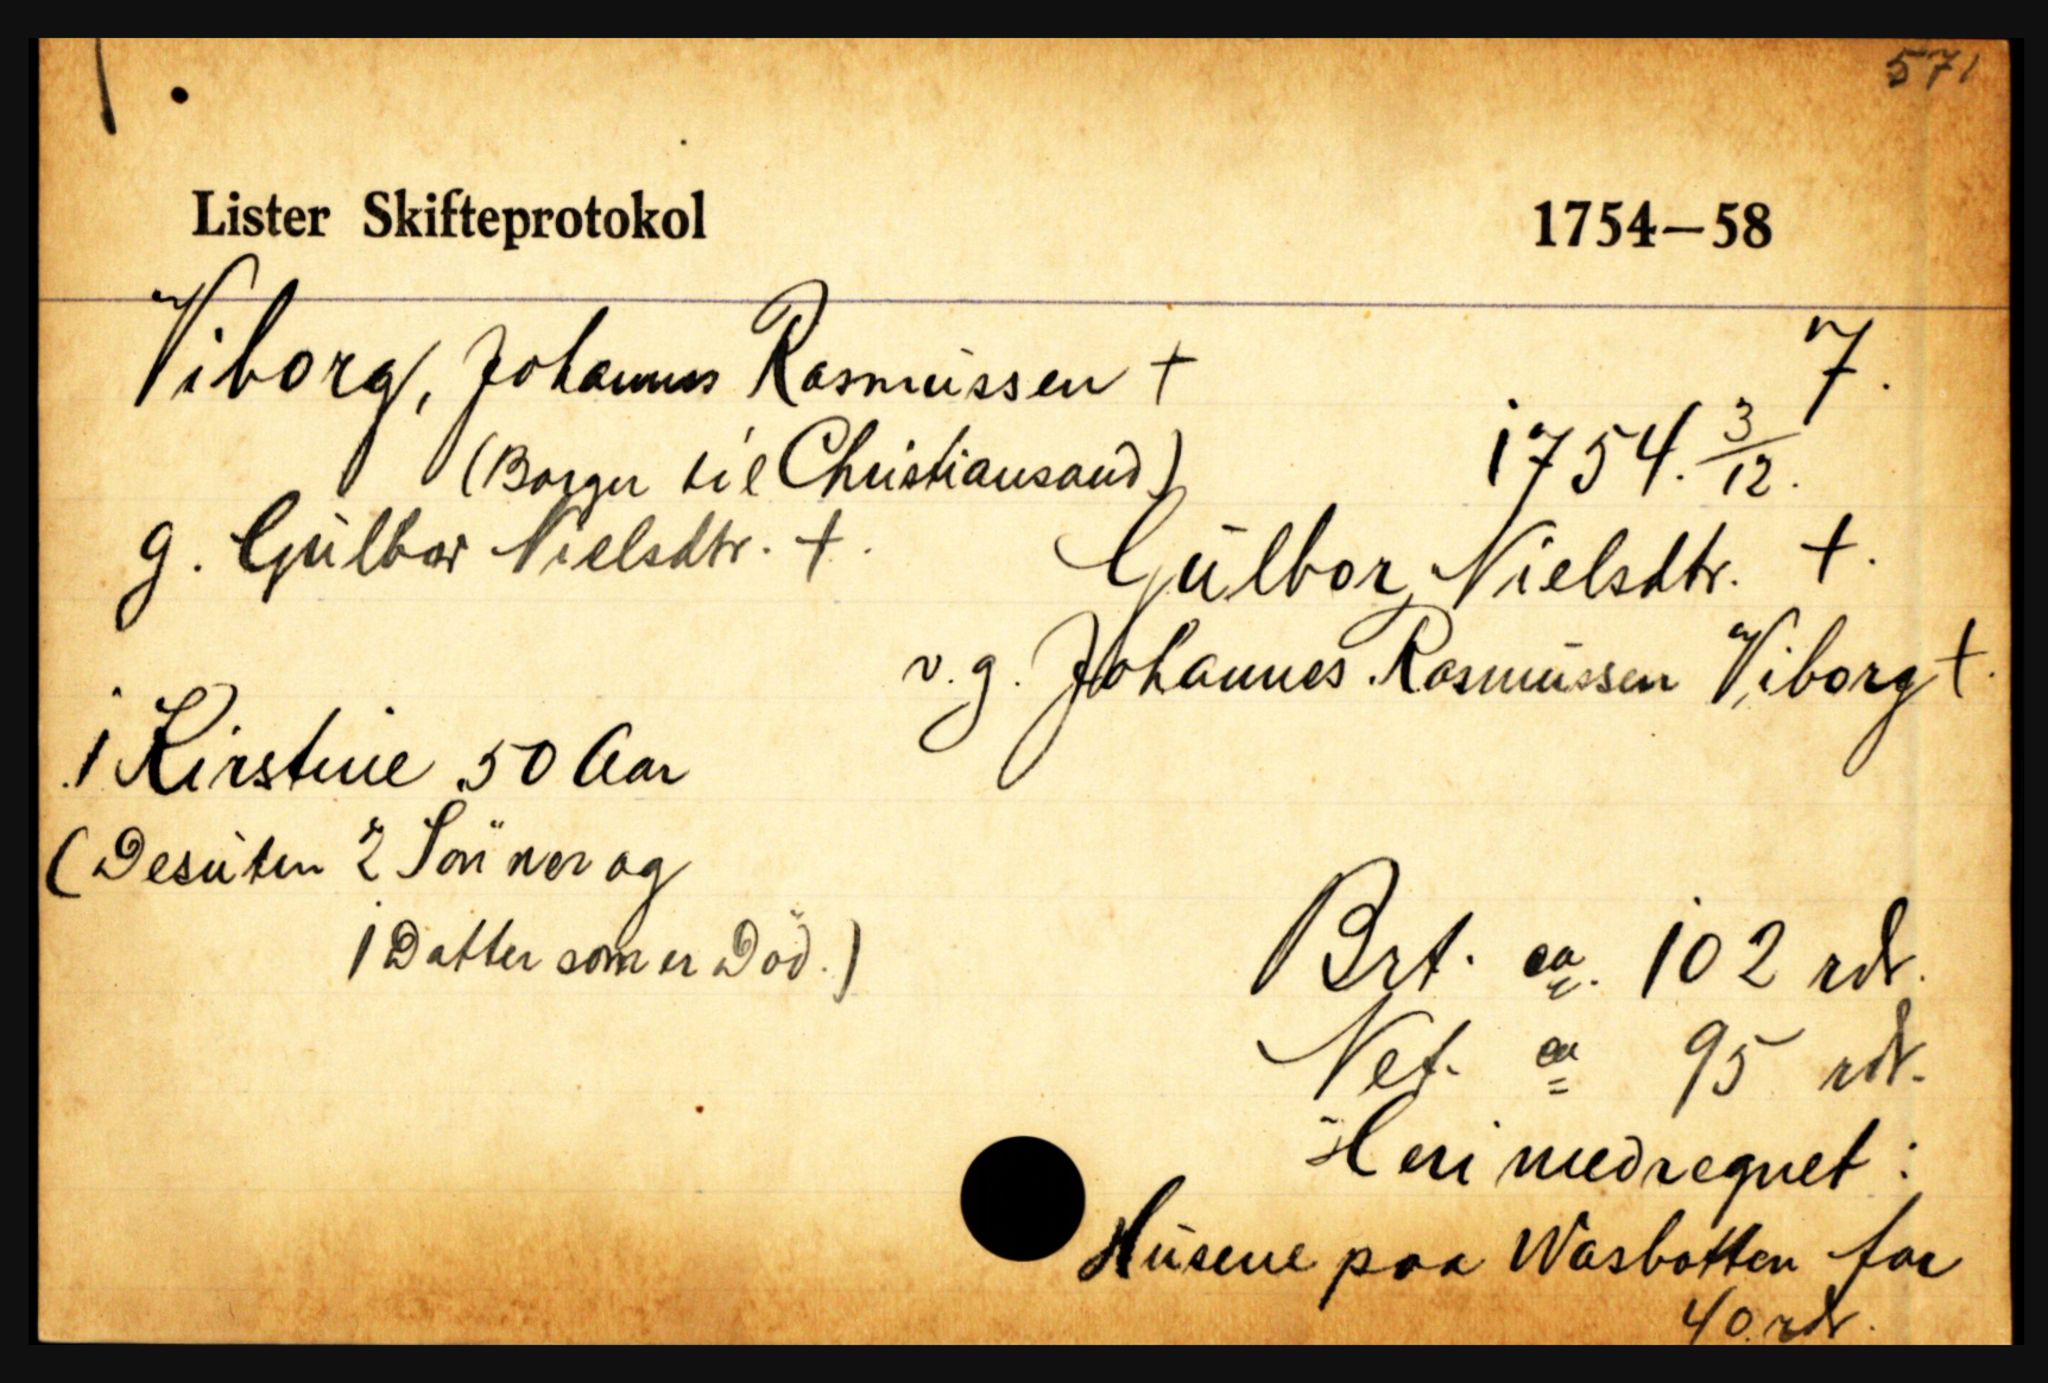 571
Lister Skifteprotokol 1754—58
Viborg, Johannes Rasmüssen + 7.
(Borger til Christiansand) 1754. 3/12.
g. Gülbor Nielsdtr. +. Gülbor Nielsdtr. +.
v. g. Johannes Rasmüssen Viborg +.
1 Kirstine 50 Aar
(Desüten 2 Sönner og
1 Datter som er Död.)
Brt. ca. 102 rdr.
Net. ca 95 rdr.
Heri medregnet:
Hüsene paa Wasbotten for
40 rdr.